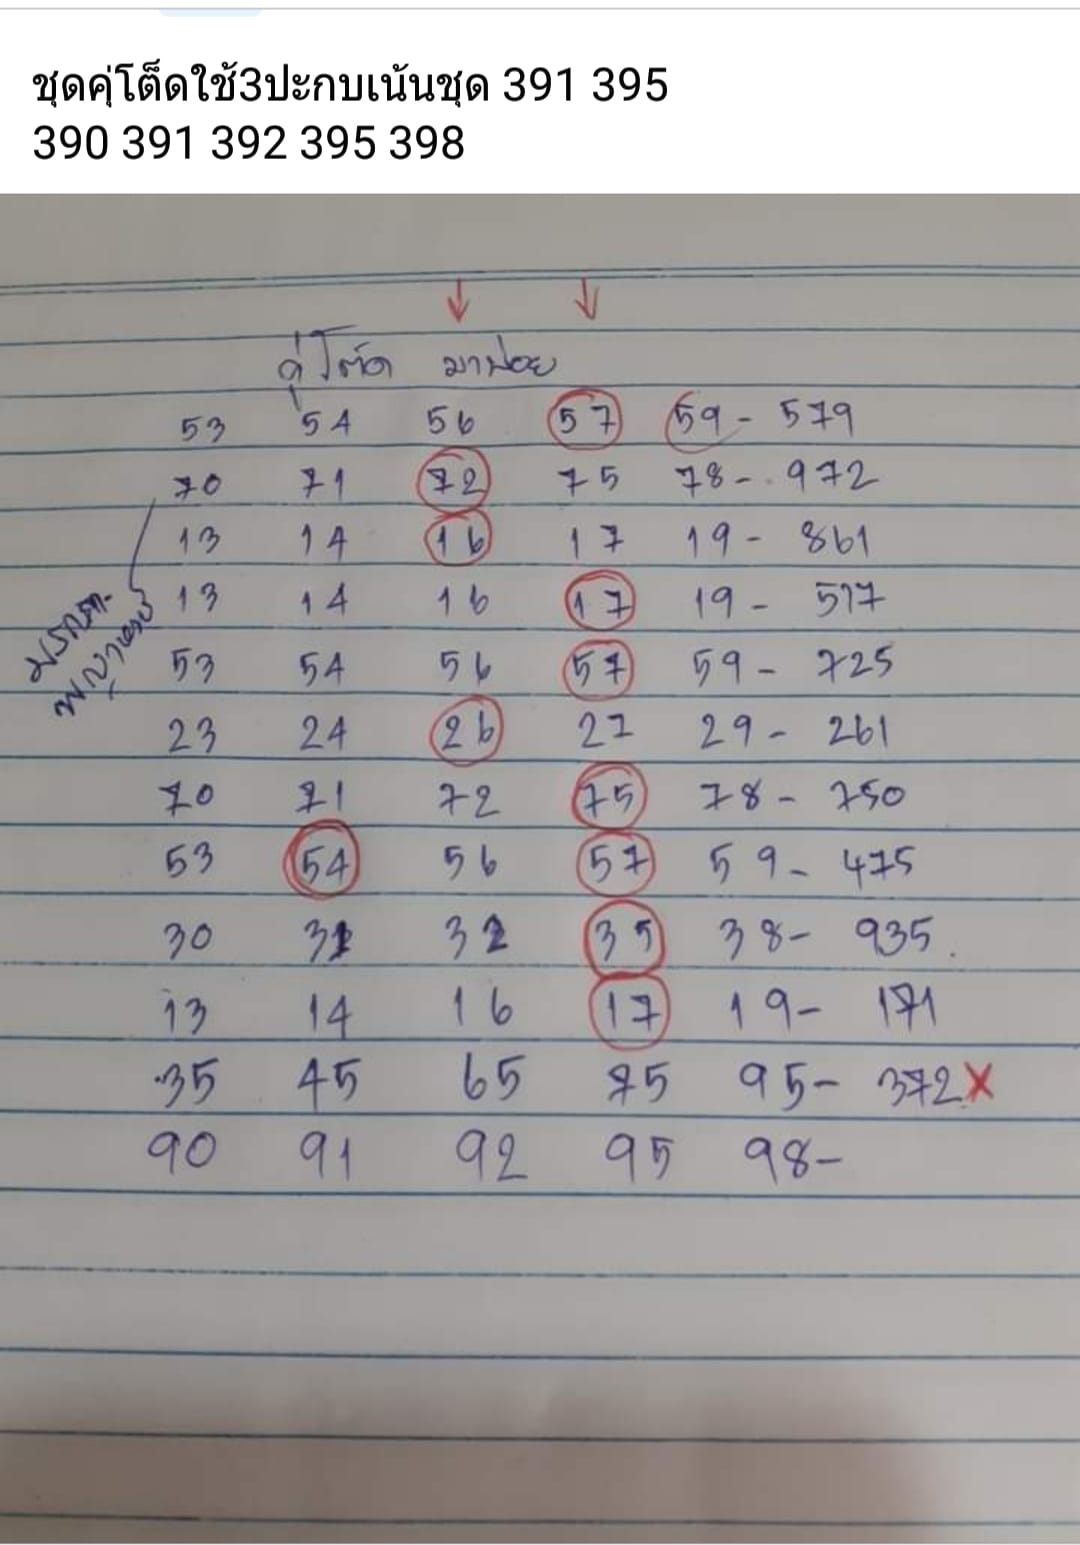 ชุดคู่โต็ดใช้3ปะกบเน้นชุด 391 395
390 391 392 395 398
คู่โต๊ด มาบ่อย
53 54 56 57 59 - 579
70 71 72 75 78 - 972
13 14 16 17 19 - 861
13 14 16 17 19 - 517
53 54 56 57 59 - 725
23 24 26 27 29 - 261
70 71 72 75 78 - 750
53 54 56 57 59 - 475
30 31 32 35 38 - 935
13 14 16 17 19 - 171
35 45 65 75 95 - 372 X
90 91 92 95 98 -